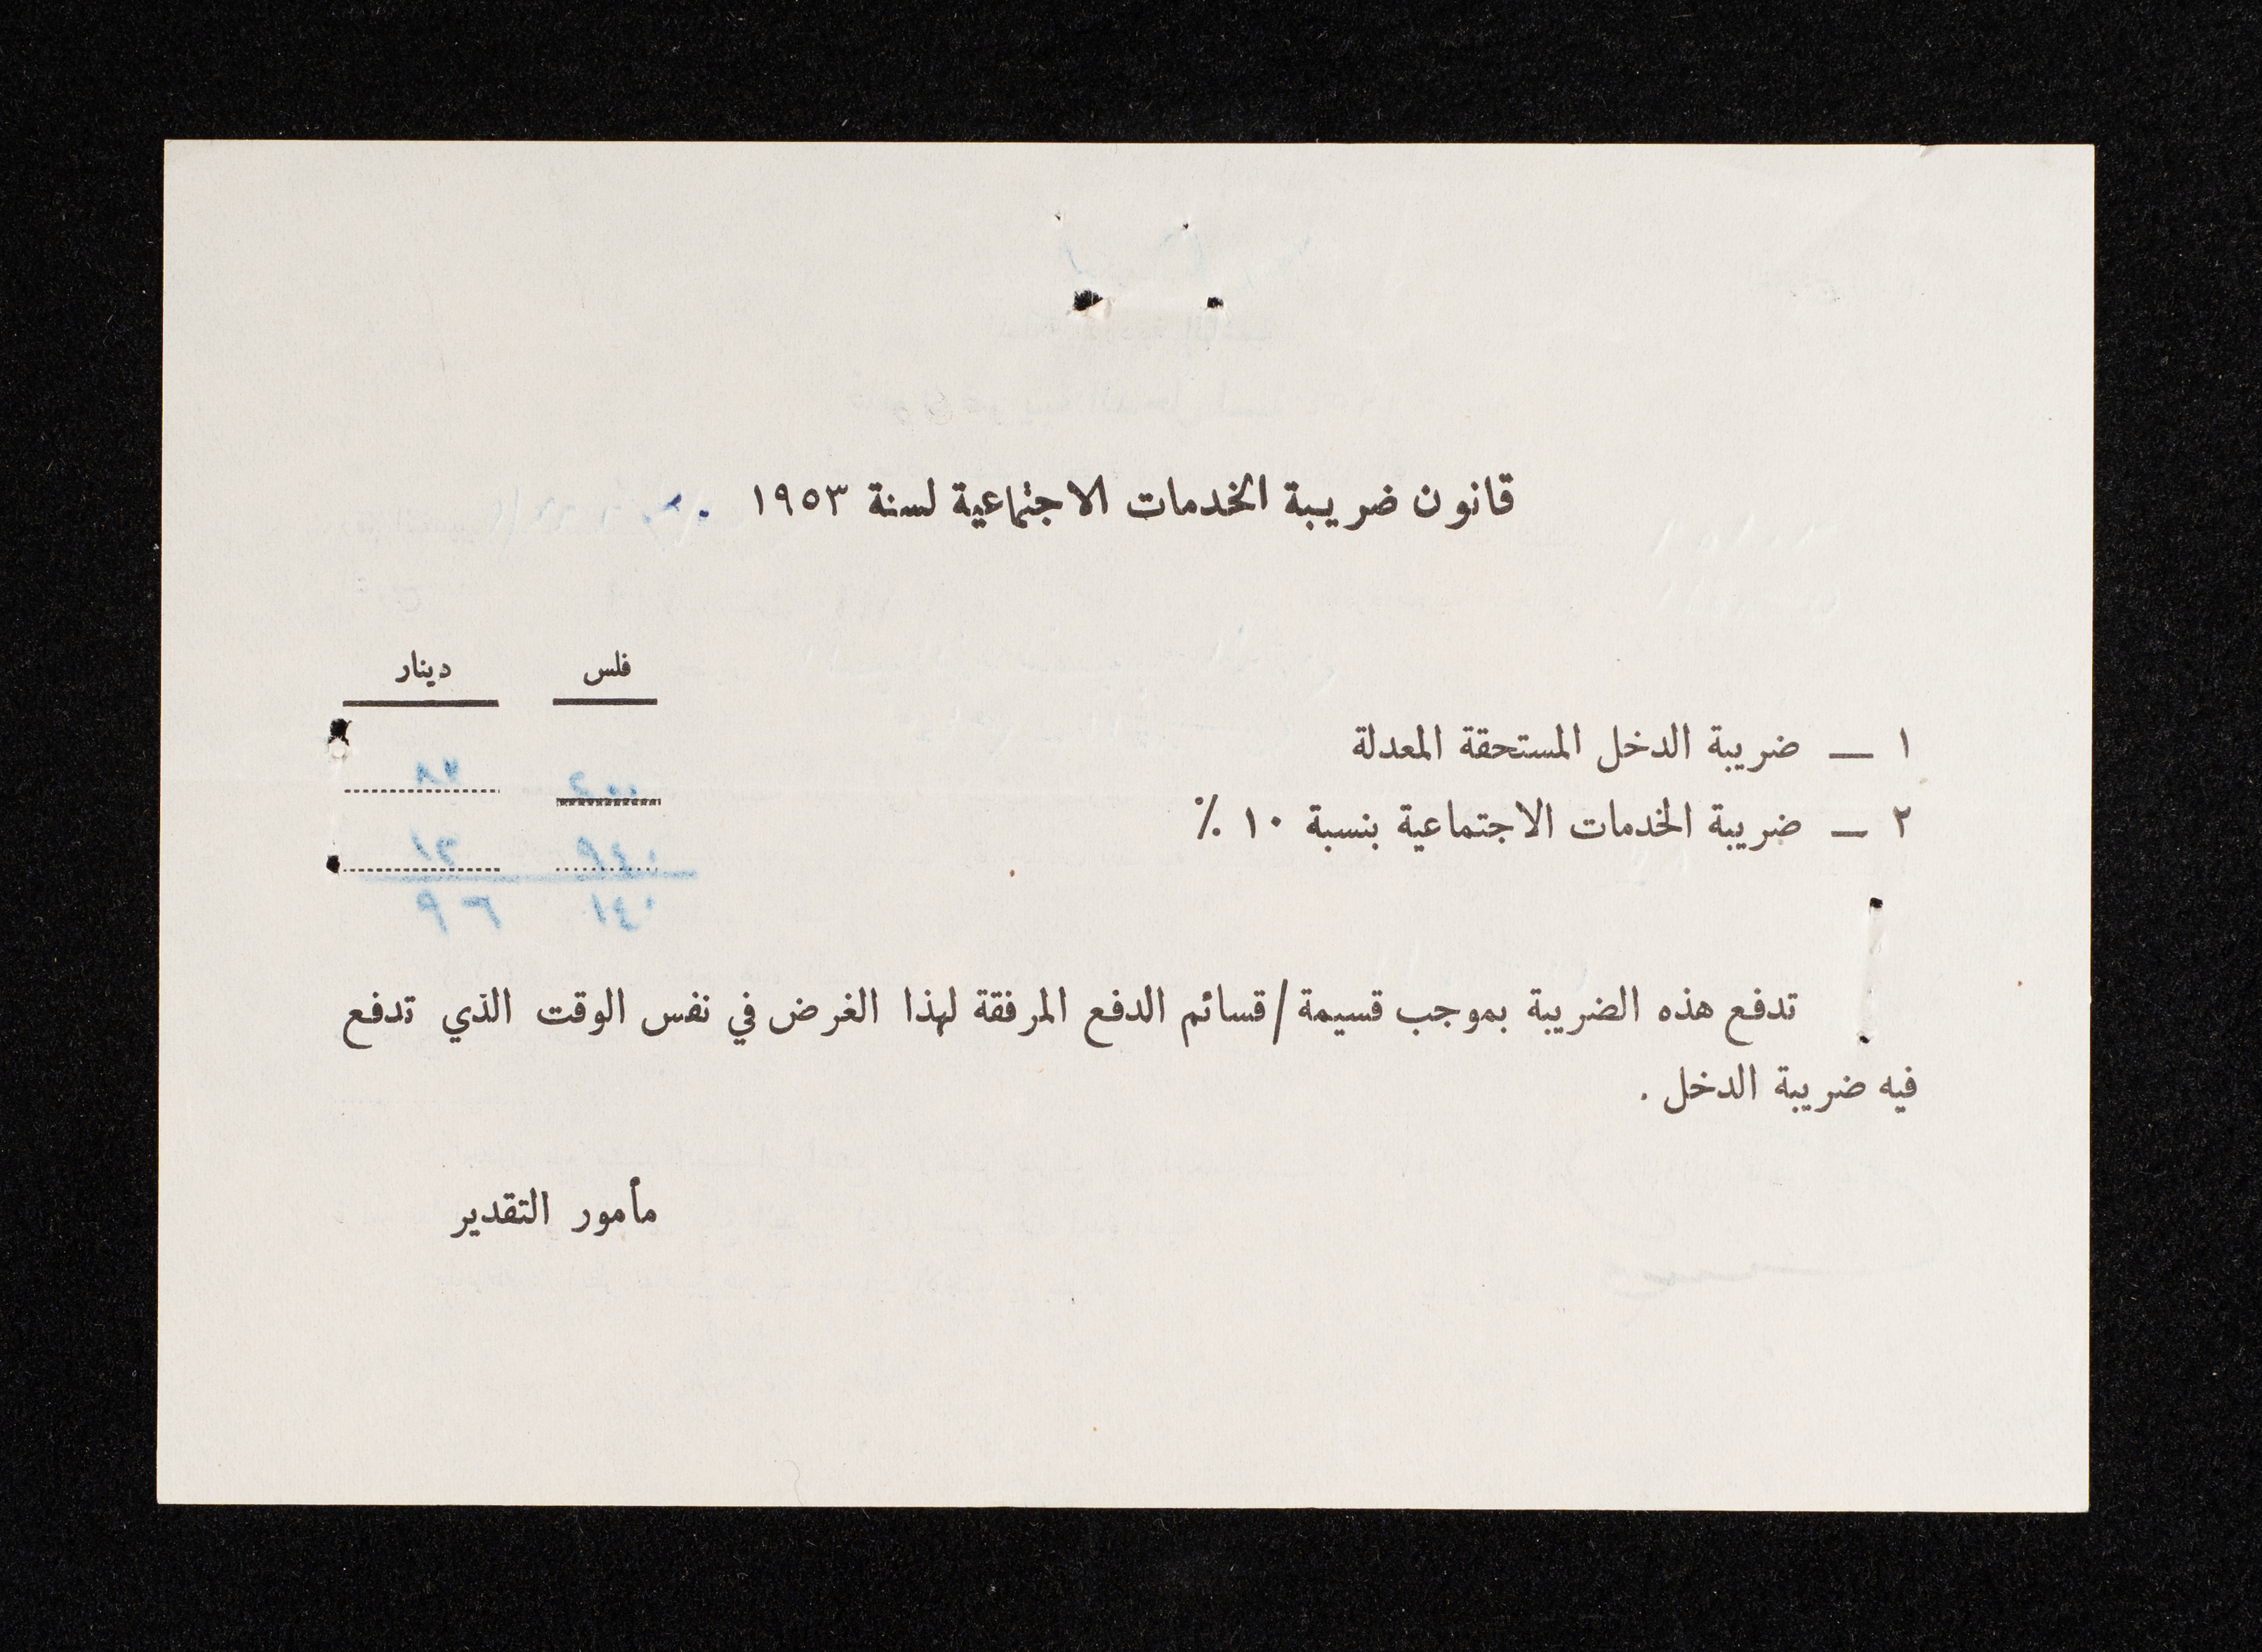 قانون ضريبة الخدمات الاجتماعية لسنة ١٩٥٣
فلس دينار
١ — ضريبة الدخل المستحقة المعدلة
٢ — ضريبة الخدمات الاجتماعية بنسبة ١٠ ٪
تدفع هذه الضريبة بموجب قسيمة/قسائم الدفع المرفقة لهذا الغرض في نفس الوقت الذي تدفع
فيه ضريبة الدخل .
مأمور التقدير